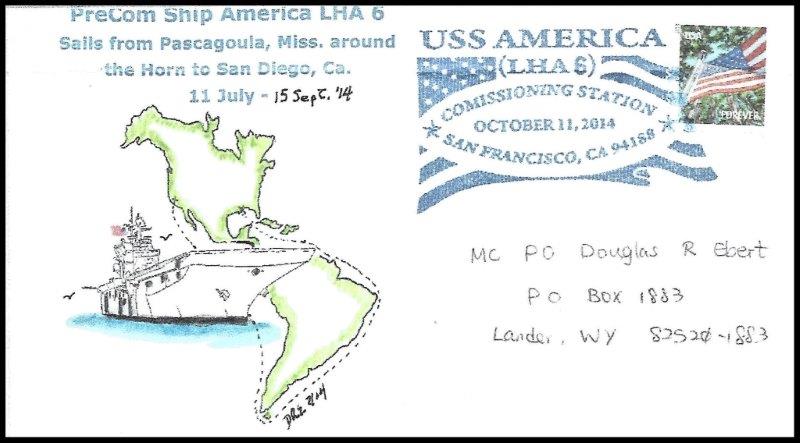 PreCom Ship America LHA 6
Sails from Pascagoula, Miss. around
the Horn to San Diego, Ca.
11 July - 15 Sept. '14
USS AMERICA
(LHA 6)
COMISSIONING STATION
OCTOBER 11, 2014
SAN FRANCISCO, CA 94188
USA
FOREVER
MC PO Douglas R Ebert
PO BOX 1883
Lander, WY 82520-1883
DRE